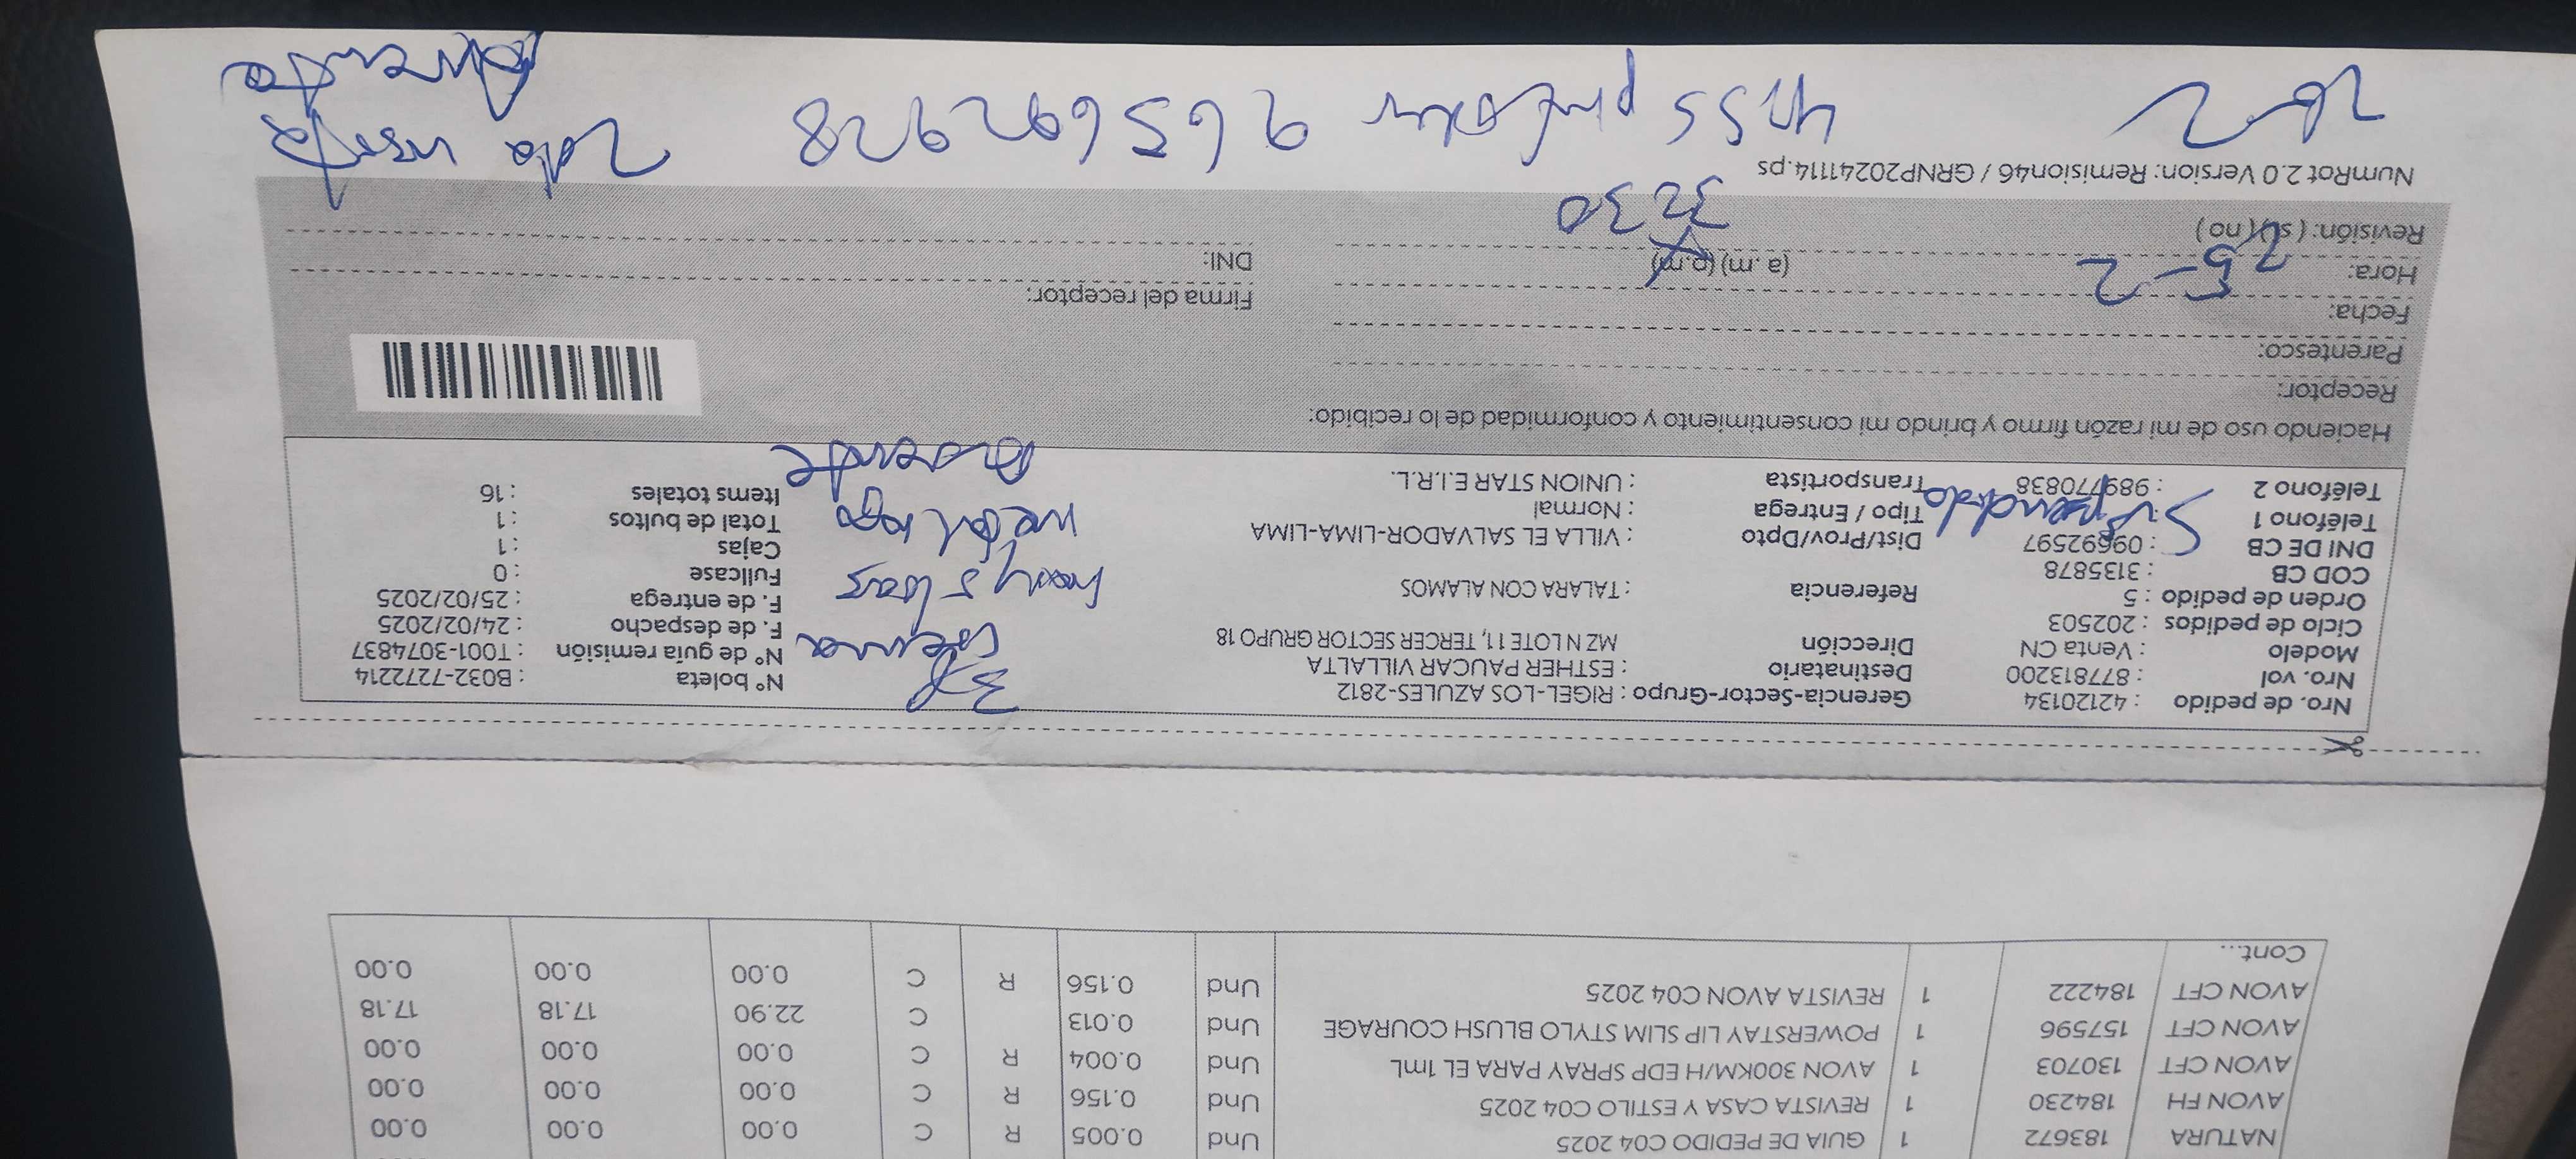 NATURA 183672 1 GUIA DE PEDIDO C04 2025 Und 0.005 R C 0.00 0.00 0.00
AVON FH 184230 1 REVISTA CASA Y ESTILO C04 2025 Und 0.156 R C 0.00 0.00 0.00
AVON CFT 130703 1 AVON 300KM/H EDP SPRAY PARA EL 1mL Und 0.004 R C 0.00 0.00 0.00
AVON CFT 157596 1 POWERSTAY LIP SLIM STYLO BLUSH COURAGE Und 0.013 C 22.90 17.18 17.18
AVON CFT 184222 1 REVISTA AVON C04 2025 Und 0.156 R C 0.00 0.00 0.00
Cont...
Nro. de pedido : 42120134 Gerencia-Sector-Grupo : RIGEL-LOS AZULES-2812 Nº boleta : B032-7272214
Nro. vol : 877813200 Destinatario : ESTHER PAUCAR VILLALTA Nº de guía remisión : T001-3074837
Modelo : Venta CN Dirección MZ N LOTE 11, TERCER SECTOR GRUPO 18 F. de despacho : 24/02/2025
Ciclo de pedidos : 202503 F. de entrega : 25/02/2025
Orden de pedido : 5 Referencia : TALARA CON ALAMOS Fullcase : 0
COD CB : 3135878 Cajas : 1
DNI DE CB : 09692597 Dist/Prov/Dpto : VILLA EL SALVADOR-LIMA-LIMA Total de bultos : 1
Teléfono 1 Tipo / Entrega : Normal Items totales : 16
Teléfono 2 : 989770838 Transportista : UNION STAR E.I.R.L.
3P
Suspendido
Haciendo uso de mi razón firmo y brindo mi consentimiento y conformidad de lo recibido:
Receptor:
Parentesco:
Fecha:
Hora: (a.m) (p.m) Firma del receptor:
25-2
Revisión: (si) (no) DNI:
3230
NumRot 2.0 Version: Remision46 / GRNP20241114.ps
965692928 2da visita